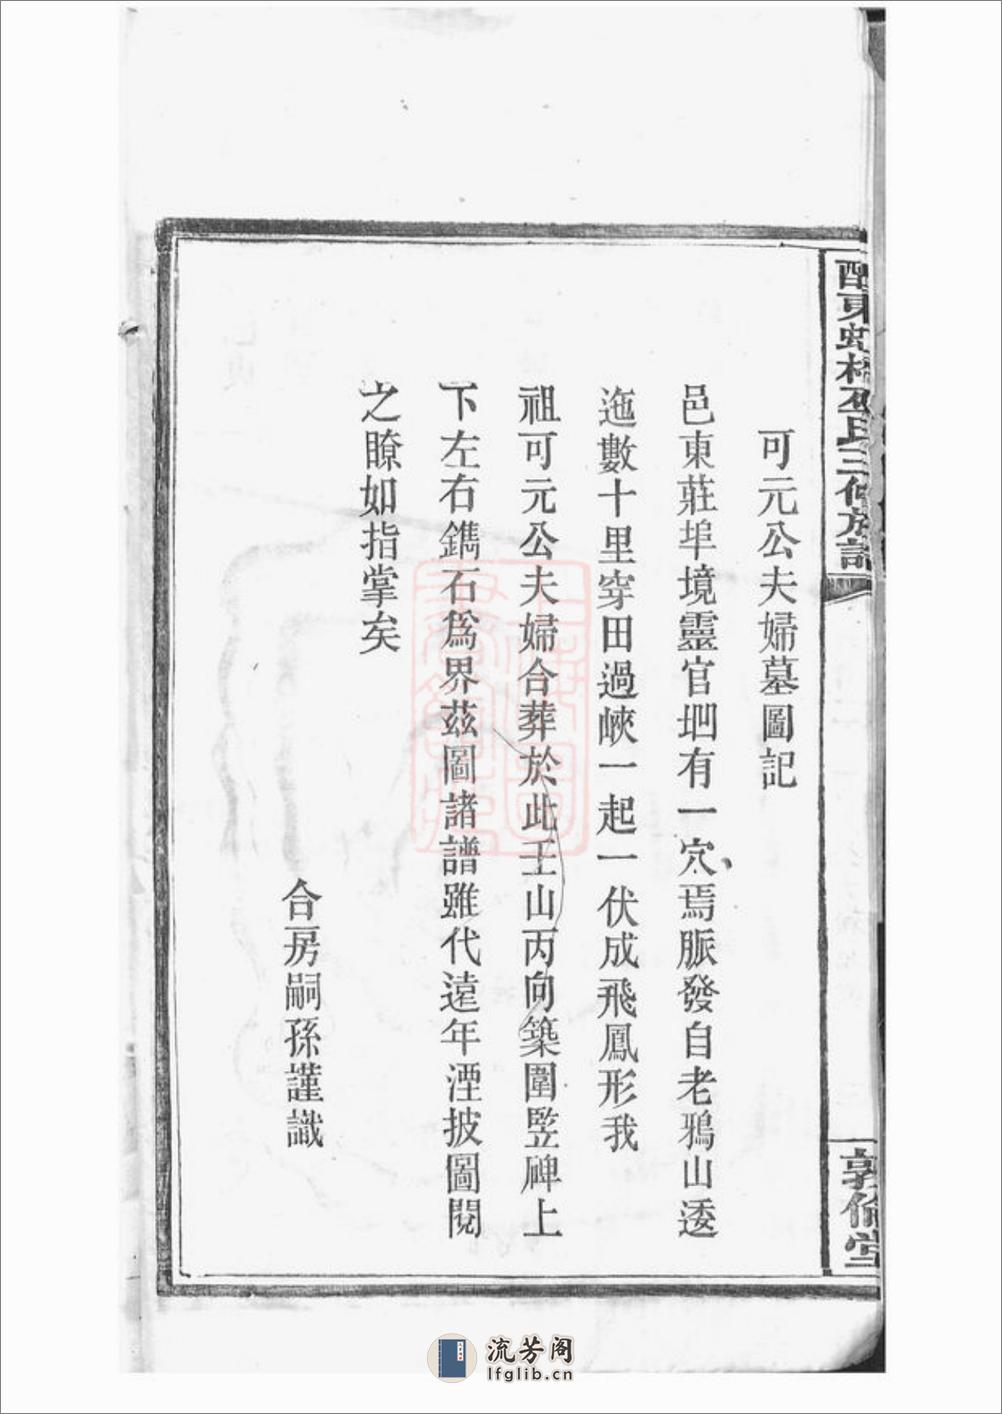 可元公夫婦墓圖記
邑東莊埠境靈官坳有一穴焉脈發自老鴉山逶
迤數十里穿田過峽一起一伏成飛鳳形我
祖可元公夫婦合葬於此壬山丙向築圍竪碑上
下左右鐫石爲界茲圖諸譜雖代遠年湮披圖閱
之瞭如指掌矣
合房嗣孫謹識
敦倫堂
流芳阁
lfglib.cn